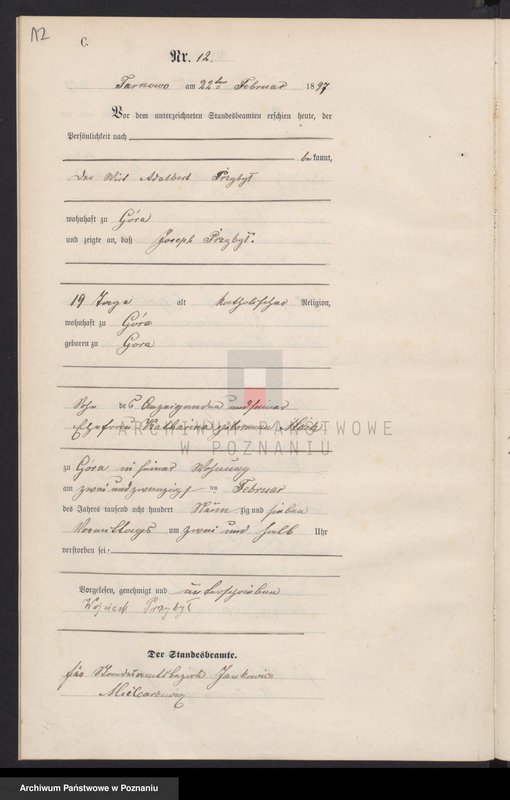 12
C.
Nr. 12.
Tarnowo am 22ten Februar 1897
Vor dem unterzeichneten Standesbeamten erschien heute, der
Persönlichkeit nach
bekannt,
der Wirt Adalbert Przybył
wohnhaft zu Góra
und zeigte an, daß Joseph Przybył.
19 Tage alt katholischer Religion,
wohnhaft zu Góra
geboren zu Gora
Sohn des Anzeigenden und seiner
Ehefrau Katharina geborenen
ARCHIWUM PAŃSTWOWE
W POZNANIU
zu Góra in seiner Wohnung
am zwei und zwanzigsten Februar
des Jahres tausend acht hundert neun zig und sieben
Vormittags um zwei und halb Uhr
verstorben sei.
Vorgelesen, genehmigt und unterschrieben
Wojciech Przybył
Der Standesbeamte.
für Standesamtsbezirk Jankowice
Archiwum Państwowe w Poznaniu